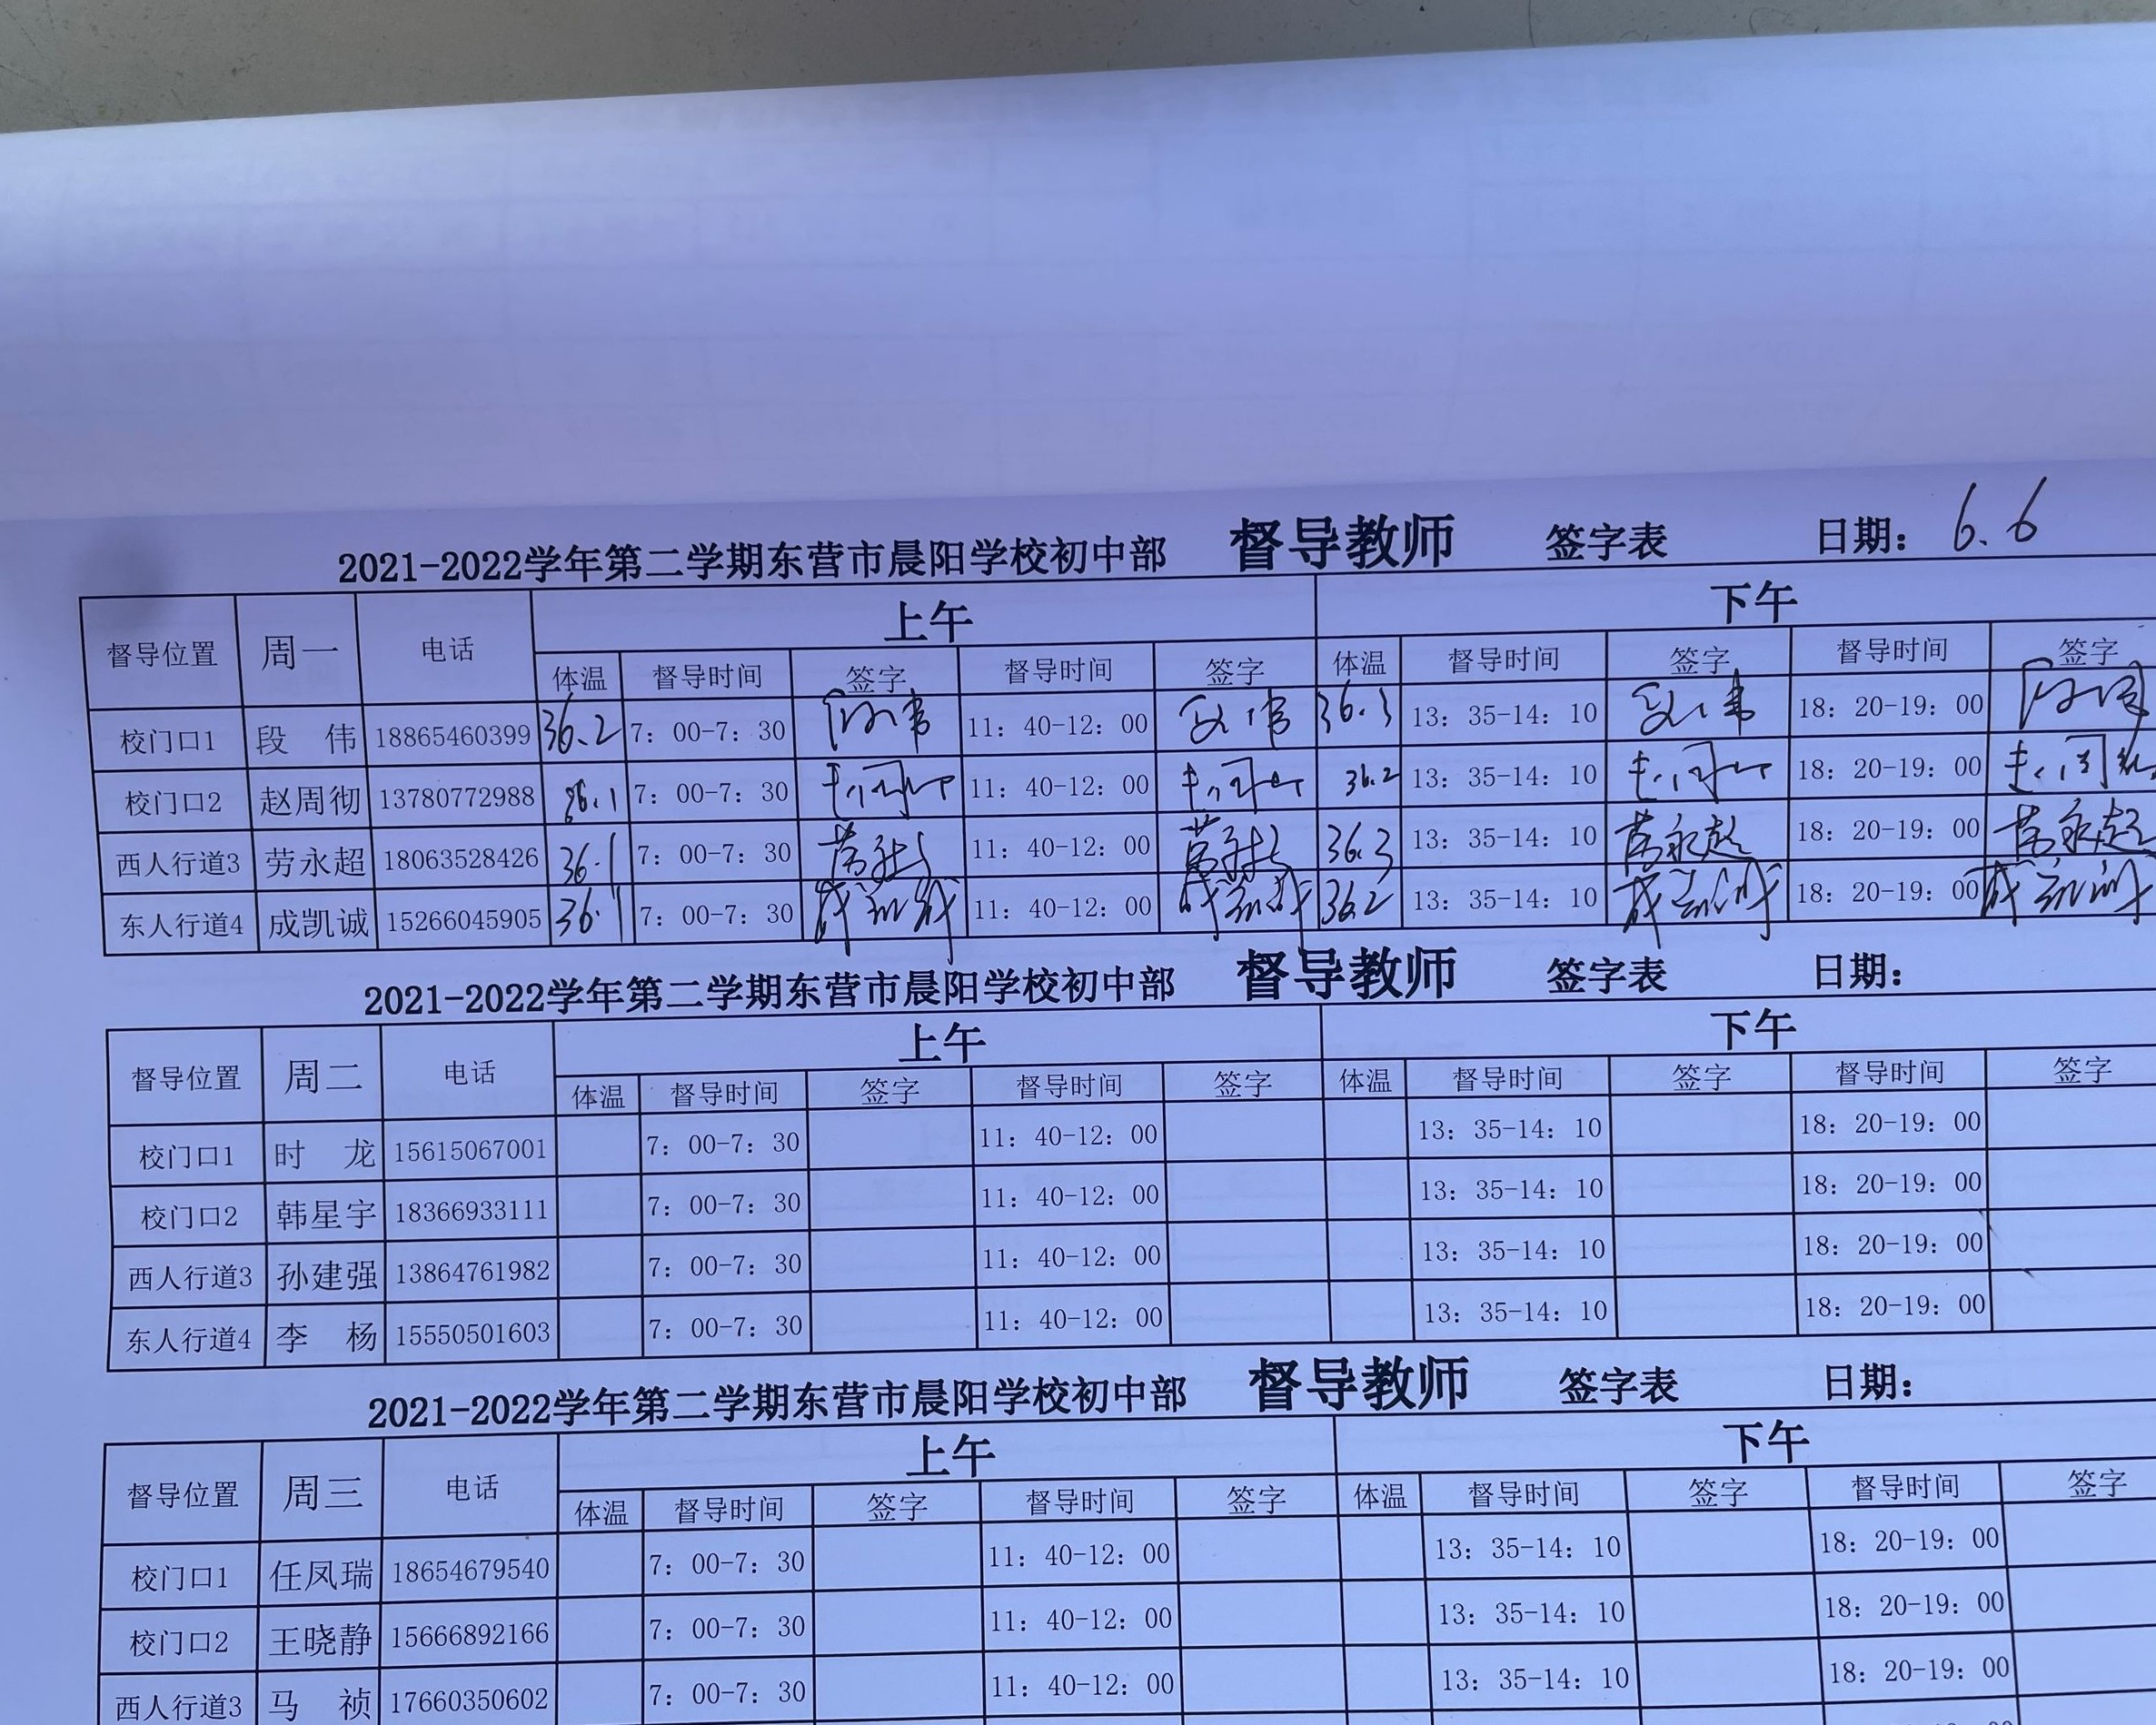 2021-2022学年第二学期东营市晨阳学校初中部 督导教师 签字表 日期：6.6
督导位置 周一 电话 上午 下午
体温 督导时间 签字 督导时间 签字 体温 督导时间 签字 督导时间 签字
校门口1 段 伟 18865460399 36.2 7：00-7：30 段伟 11：40-12：00 段伟 36.3 13：35-14：10 段伟 18：20-19：00 段伟
校门口2 赵周彻 13780772988 36.1 7：00-7：30 11：40-12：00 36.2 13：35-14：10 18：20-19：00
西人行道3 劳永超 18063528426 36.1 7：00-7：30 劳永超 11：40-12：00 劳永超 36.3 13：35-14：10 劳永超 18：20-19：00 劳永超
东人行道4 成凯诚 15266045905 36.1 7：00-7：30 成凯诚 11：40-12：00 成凯诚 36.2 13：35-14：10 成凯诚 18：20-19：00 成凯诚
2021-2022学年第二学期东营市晨阳学校初中部 督导教师 签字表 日期：
督导位置 周二 电话 上午 下午
体温 督导时间 签字 督导时间 签字 体温 督导时间 签字 督导时间 签字
校门口1 时 龙 15615067001 7：00-7：30 11：40-12：00 13：35-14：10 18：20-19：00
校门口2 韩星宇 18366933111 7：00-7：30 11：40-12：00 13：35-14：10 18：20-19：00
西人行道3 孙建强 13864761982 7：00-7：30 11：40-12：00 13：35-14：10 18：20-19：00
东人行道4 李 杨 15550501603 7：00-7：30 11：40-12：00 13：35-14：10 18：20-19：00
2021-2022学年第二学期东营市晨阳学校初中部 督导教师 签字表 日期：
督导位置 周三 电话 上午 下午
体温 督导时间 签字 督导时间 签字 体温 督导时间 签字 督导时间 签字
校门口1 任凤瑞 18654679540 7：00-7：30 11：40-12：00 13：35-14：10 18：20-19：00
校门口2 王晓静 15666892166 7：00-7：30 11：40-12：00 13：35-14：10 18：20-19：00
西人行道3 马 祯 17660350602 7：00-7：30 11：40-12：00 13：35-14：10 18：20-19：00